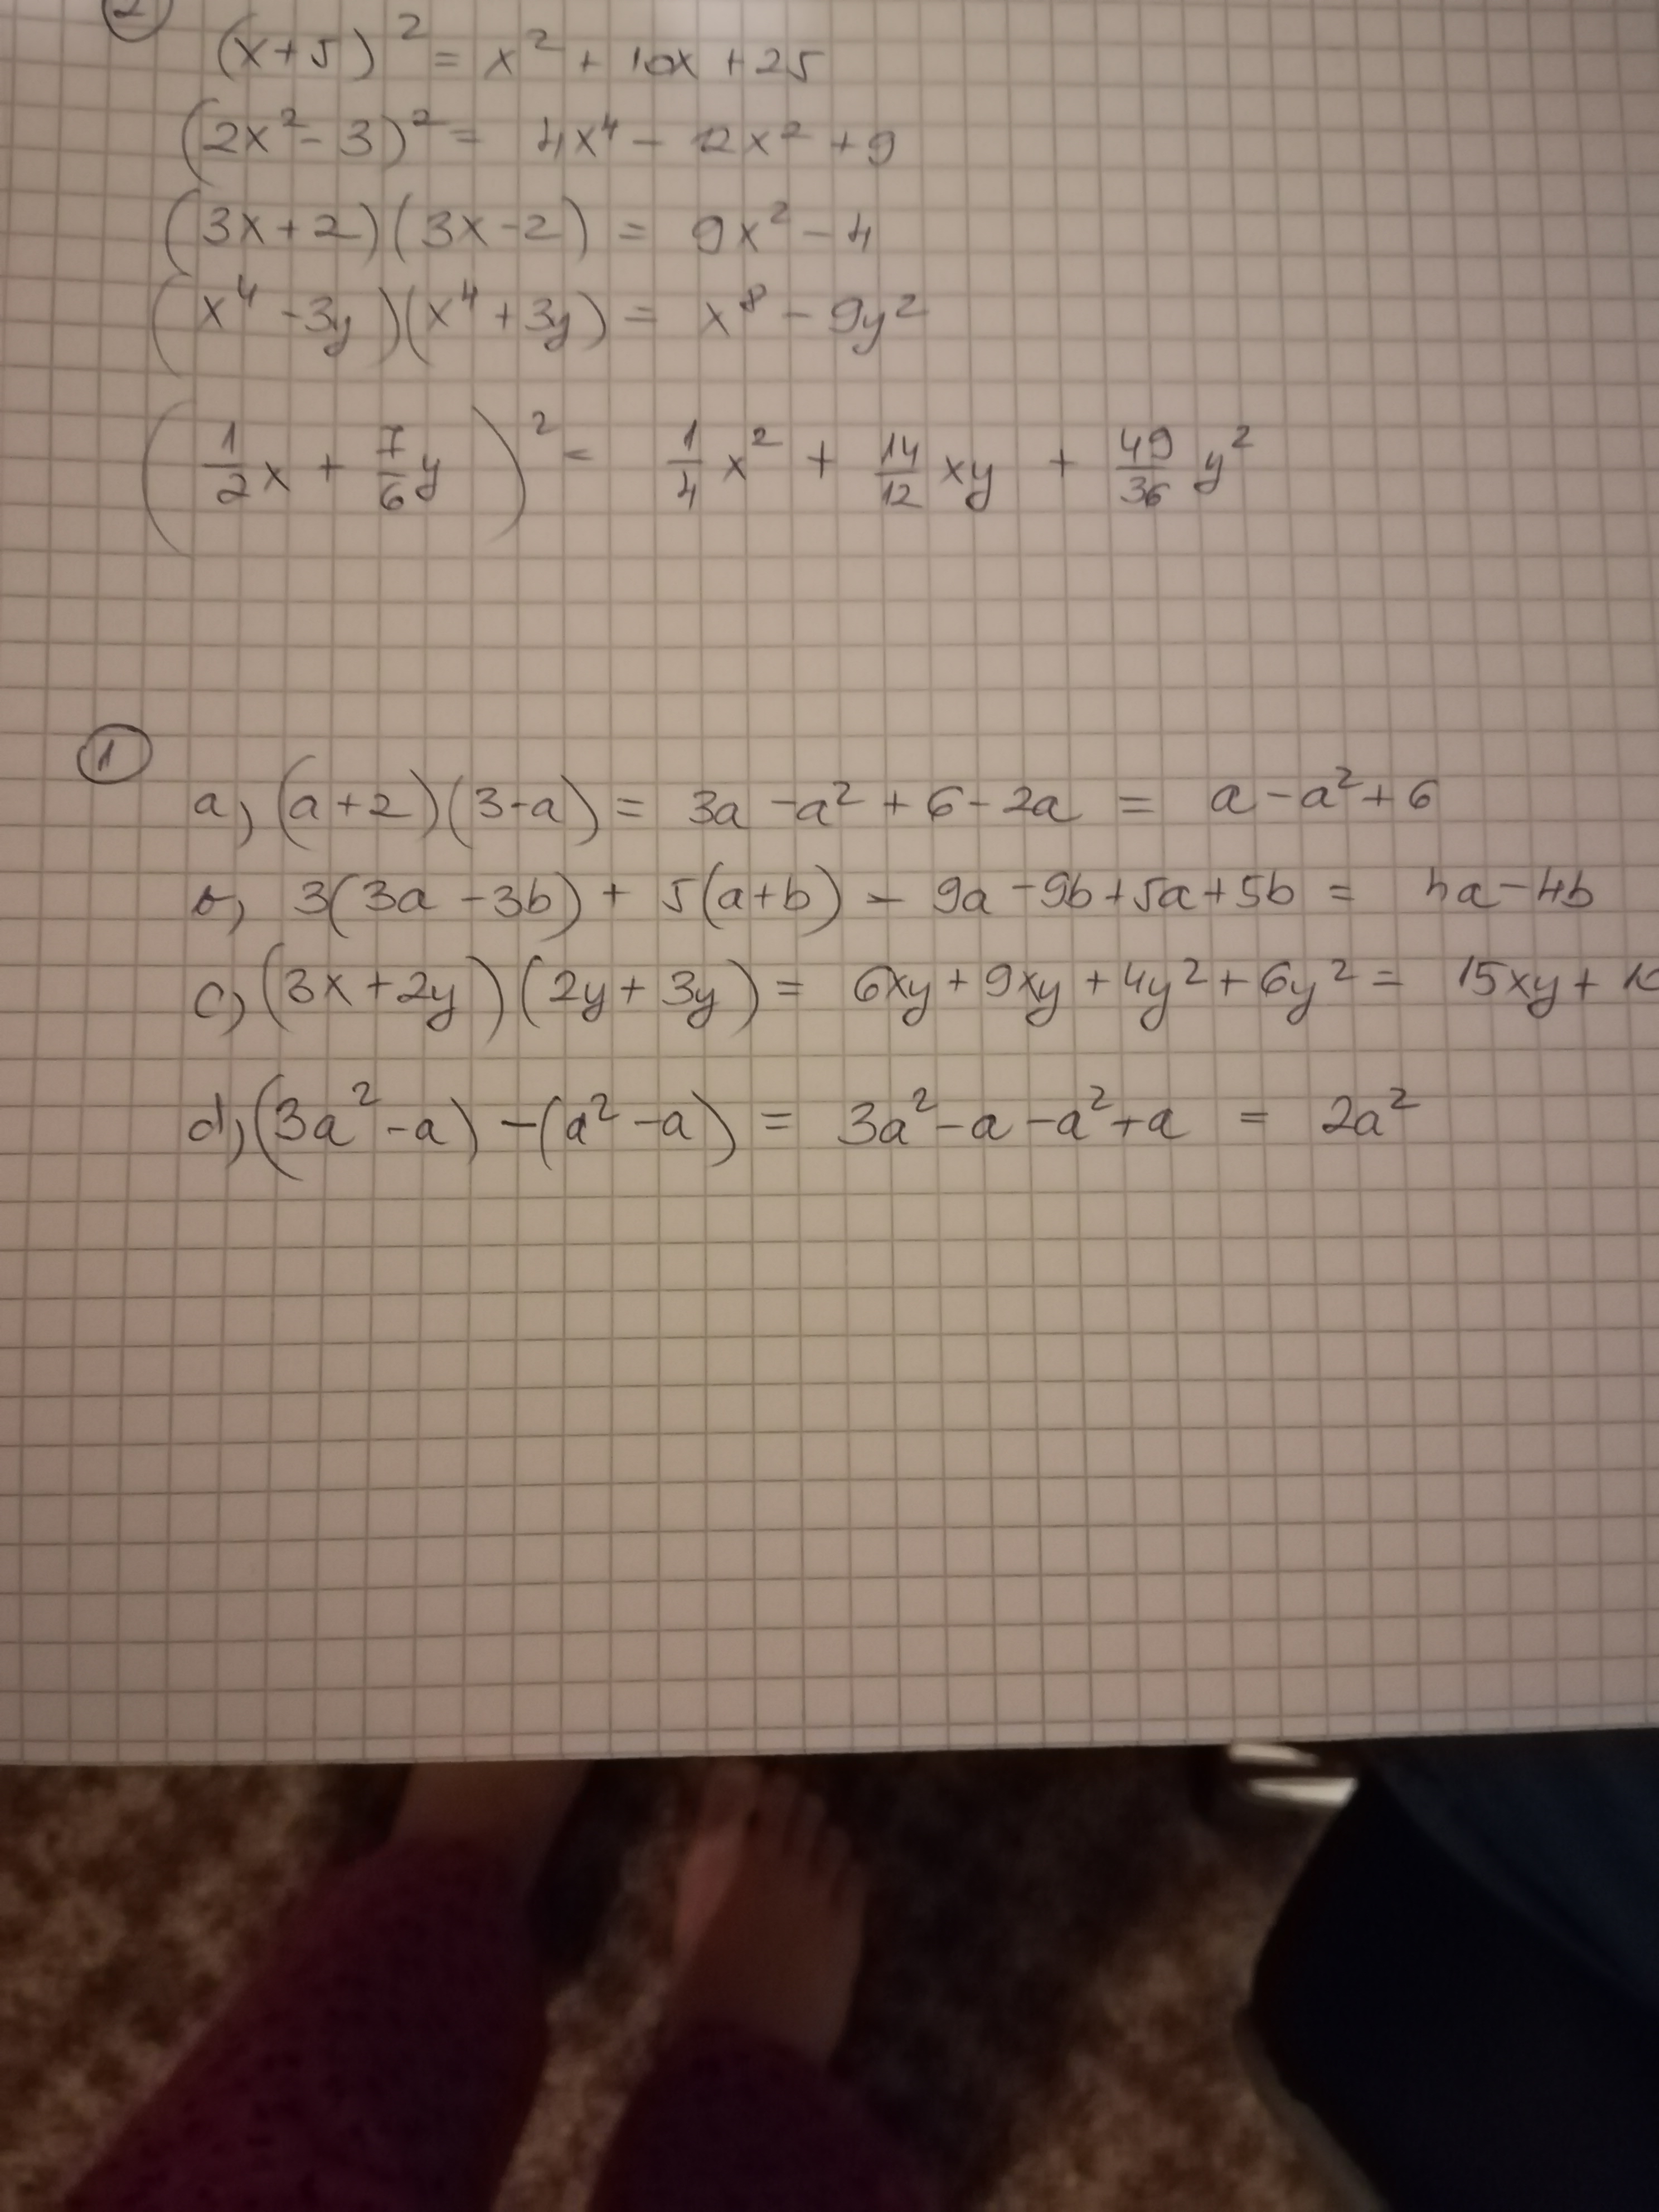 2
(x+5)² = x² + 10x + 25
(2x² - 3)² = 4x⁴ - 12x² + 9
(3x+2)(3x-2) = 9x² - 4
(x⁴ - 3y)(x⁴ + 3y) = x⁸ - 9y²
(1/2 x + 7/6 y)² = 1/4 x² + 14/12 xy + 49/36 y²
1
a) (a+2)(3-a) = 3a - a² + 6 - 2a = a - a² + 6
b) 3(3a - 3b) + 5(a+b) - 9a - 9b + 5a + 5b = 4a - 4b
c) (3x+2y)(2y+3y) = 6xy + 9xy + 4y² + 6y² = 15xy + 10
d) (3a² - a) - (a² - a) = 3a² - a - a² + a = 2a²